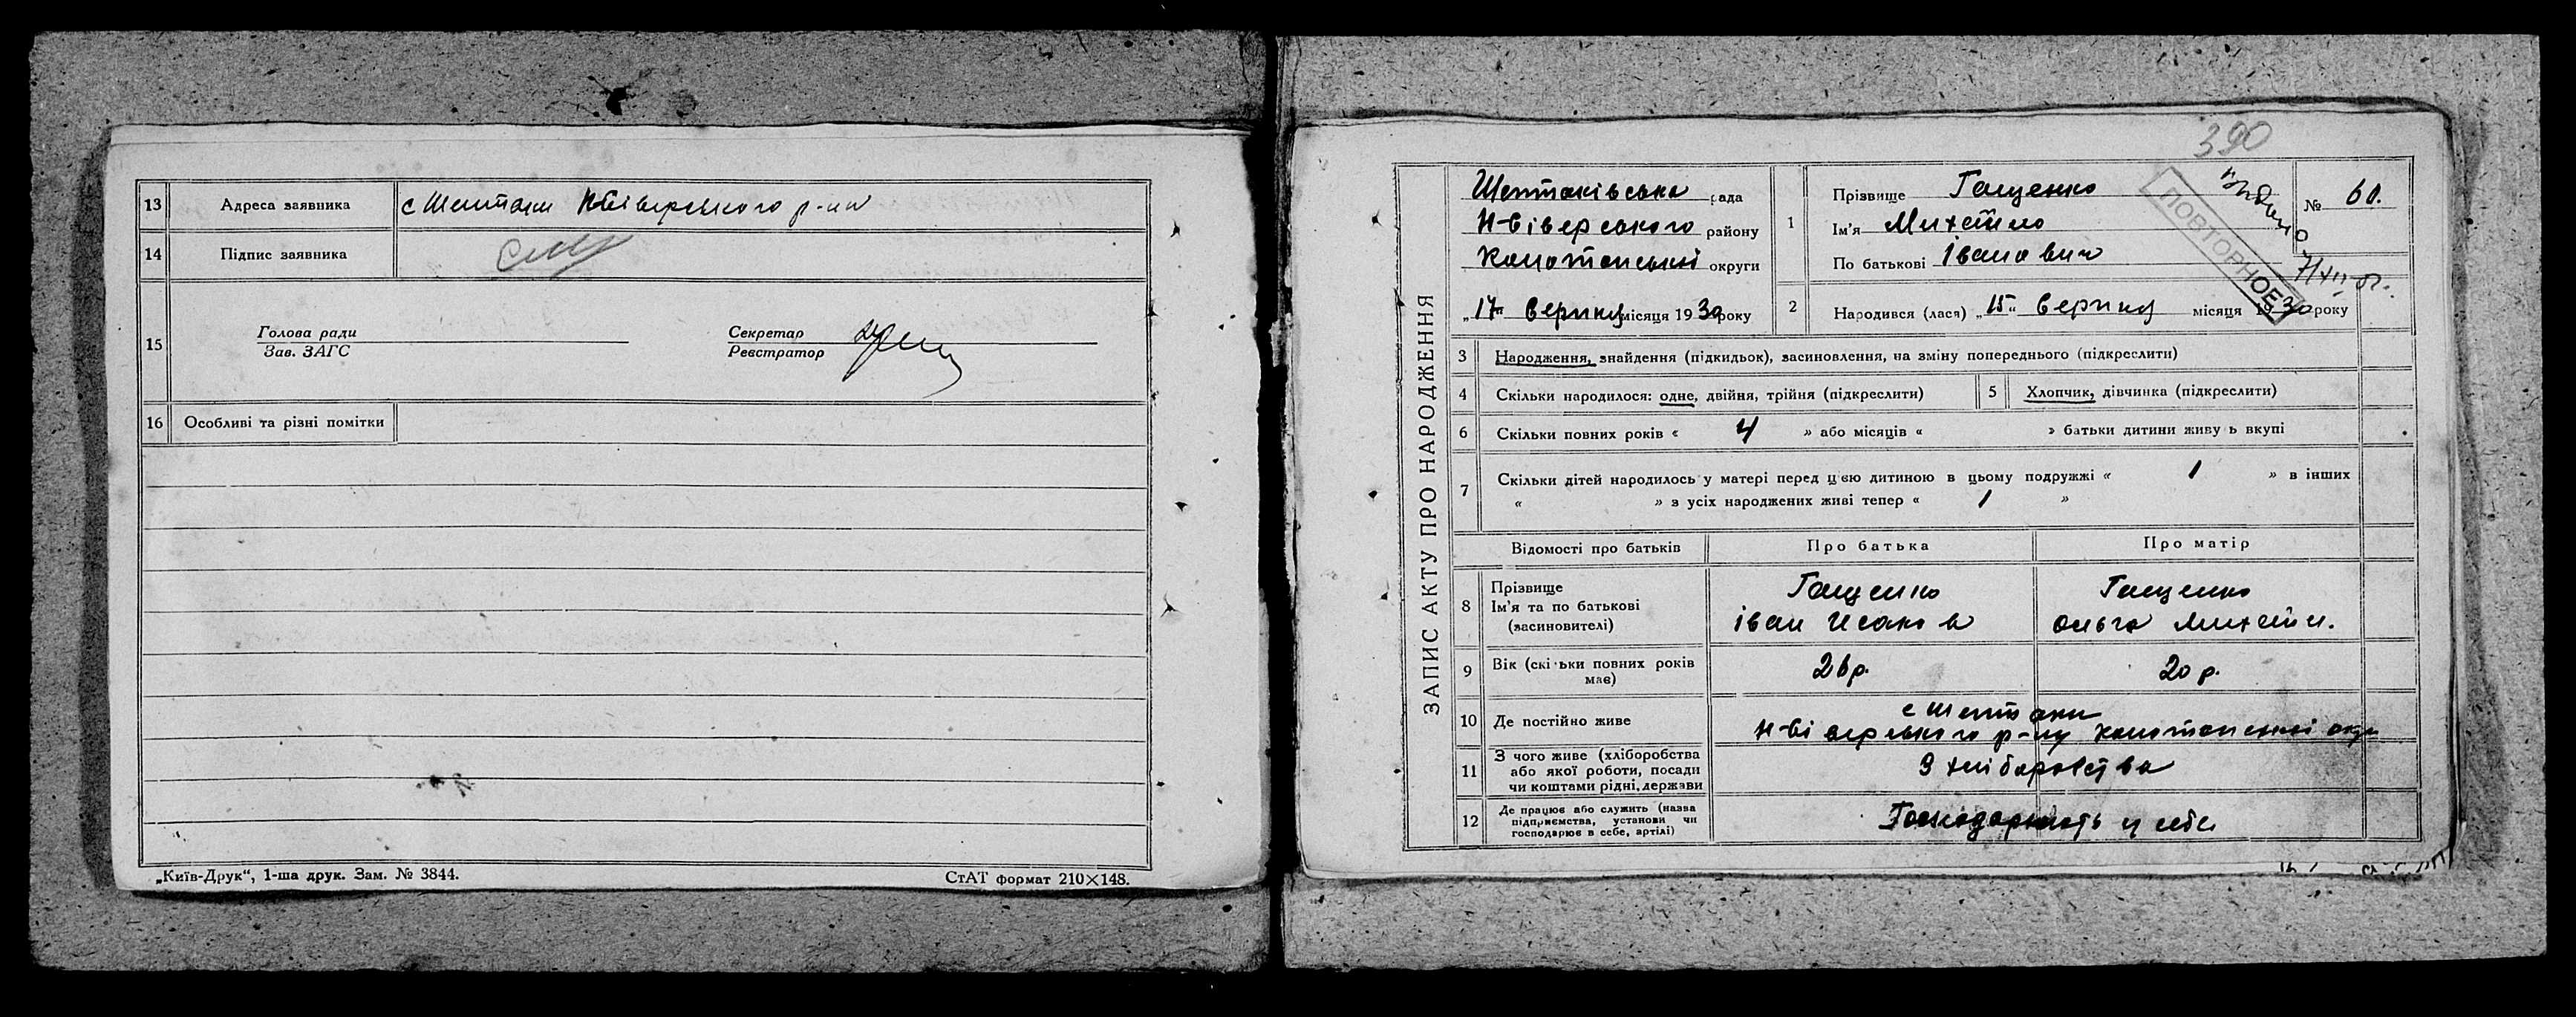 13 Адреса заявника с Шептаки Н-Сіверського р-ну
14 Підпис заявника
15 Голова ради Зав. ЗАГС Секретар Реєстратор
16 Особливі та різні помітки
„Київ-Друк“, 1-ша друк. Зам. № 3844. СтАТ формат 210×148.
390
ЗАПИС АКТУ ПРО НАРОДЖЕННЯ
Шептаківська рада
Н-Сіверського району
Конотопської округи
„17“ Вересня місяця 1930 року
1 Прізвище Гащенко
Ім'я Михайло
По батькові Іванович
№ 60.
Видано
7/XII-51.
ПОВТОРНОЕ
2 Народився (лася) „15“ Вересня місяця 1930 року
3 Народження, знайдення (підкидьок), засиновлення, на зміну попереднього (підкреслити)
4 Скільки народилося: одне, двійня, трійня (підкреслити) 5 Хлопчик, дівчинка (підкреслити)
6 Скільки повних років « 4 » або місяців « » батьки дитини живуть вкупі
7 Скільки дітей народилось у матері перед цією дитиною в цьому подружжі « 1 » в інших
« » з усіх народжених живі тепер « 1 »
Відомості про батьків Про батька Про матір
8 Прізвище Ім'я та по батькові (засиновителі)
Гащенко Іван Исаков
Гащенко Ольга Михайл.
9 Вік (скільки повних років має) 26 р. 20 р.
10 Де постійно живе с Шептаки
Н-Сіверського р-ну Конотопської окр
11 З чого живе (хліборобства або якої роботи, посади чи коштами рідні, держави З хліборобства
12 Де працює або служить (назва підприємства, установи чи господарює в себе, артілі) Господарюють у себе